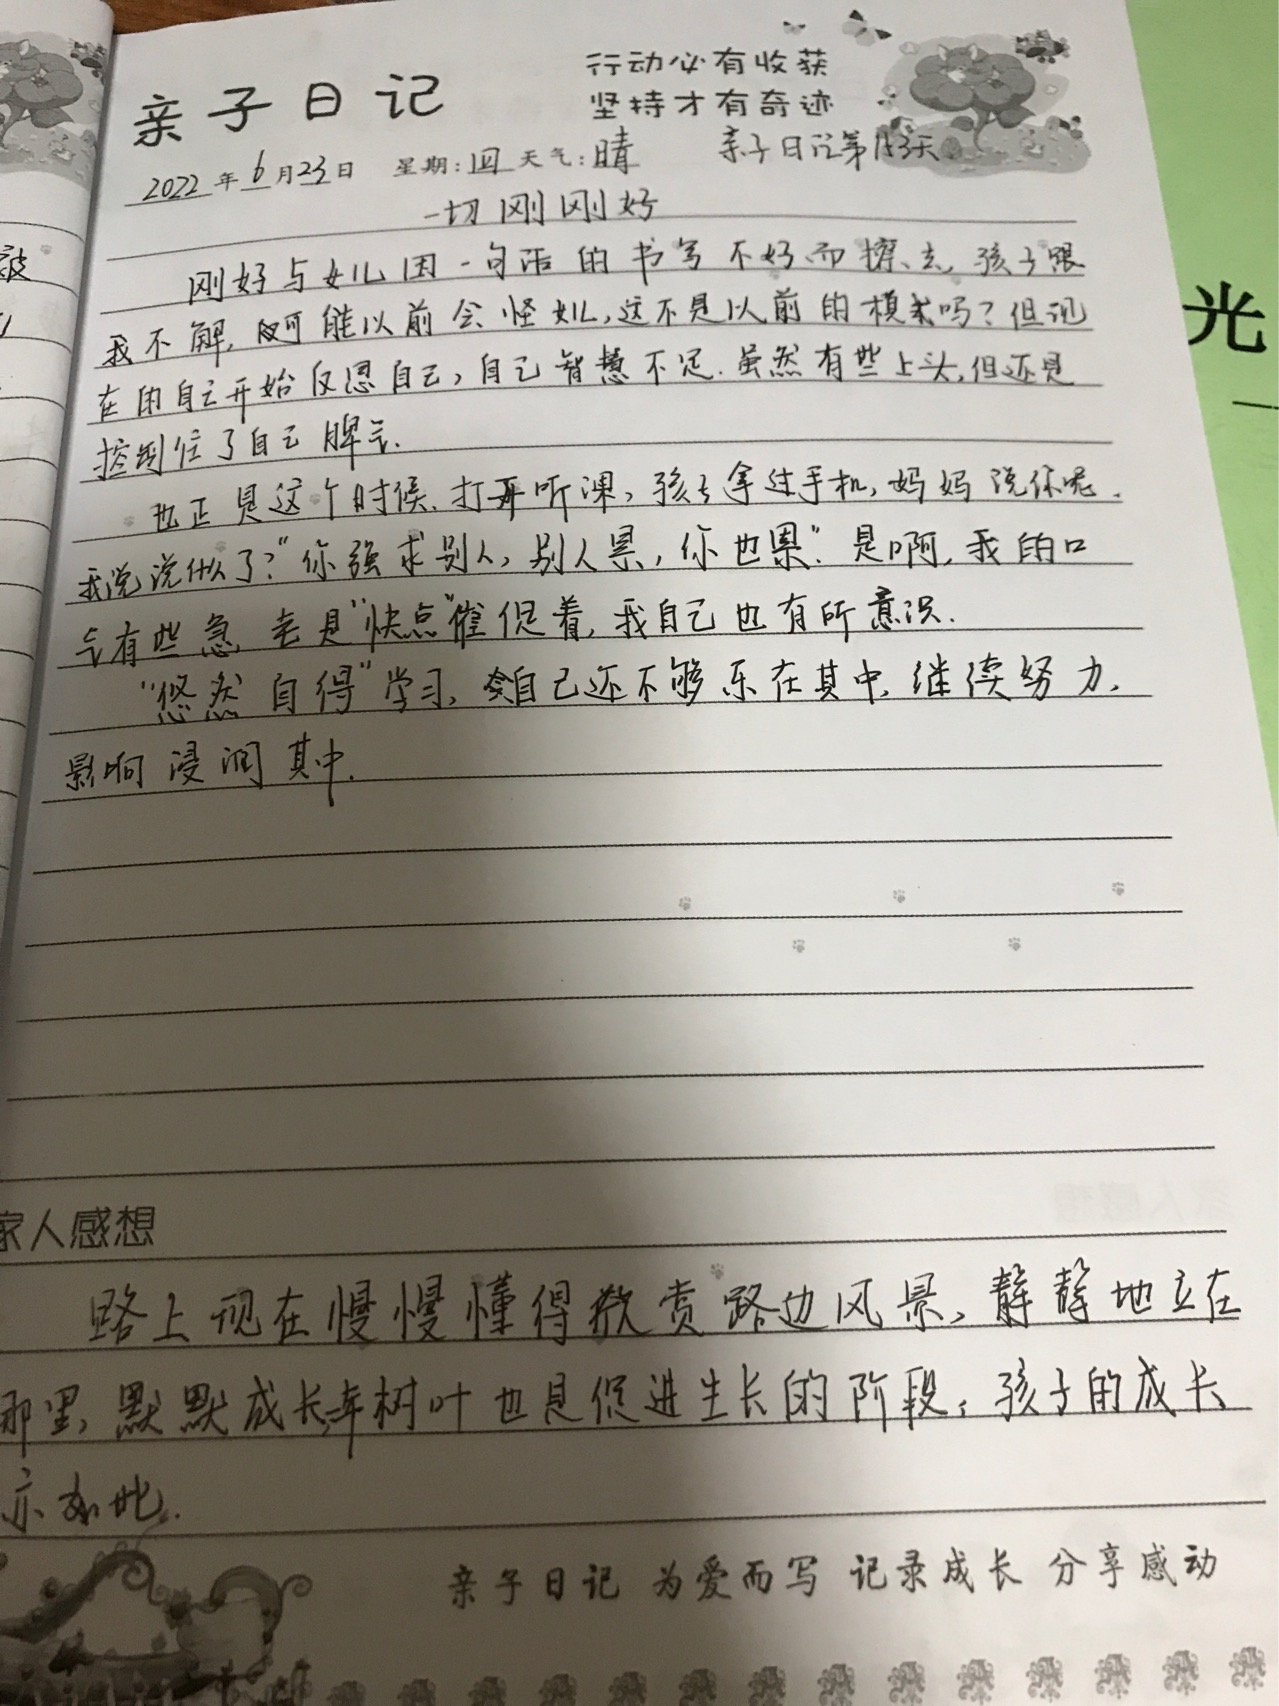 亲子日记
行动必有收获
坚持才有奇迹
2022年6月23日 星期:四 天气:晴
亲子日记第153天
一切刚刚好
刚好与女儿因一句话的书写不好而擦去,孩子跟
我不解,可能以前会怪女儿,这不是以前的模式吗?但现
在的自己开始反思自己,自己智慧不足.虽然有些上头,但还是
控制住了自己脾气.
也正是这个时候.打开听课,孩子拿过手机,妈妈说你呢.
我说说什么了?"你强求别人,别人累,你也累".是啊,我的口
气有些急 老是"快点"催促着,我自己也有所意识.
"悠然自得"学习,自己还不够乐在其中,继续努力,
影响浸润其中.
家人感想
路上现在慢慢懂得欣赏路边风景,静静地立在
那里,默默成长,树叶也是促进生长的阶段,孩子的成长
亦如此.
亲子日记 为爱而写 记录成长 分享感动
光
被